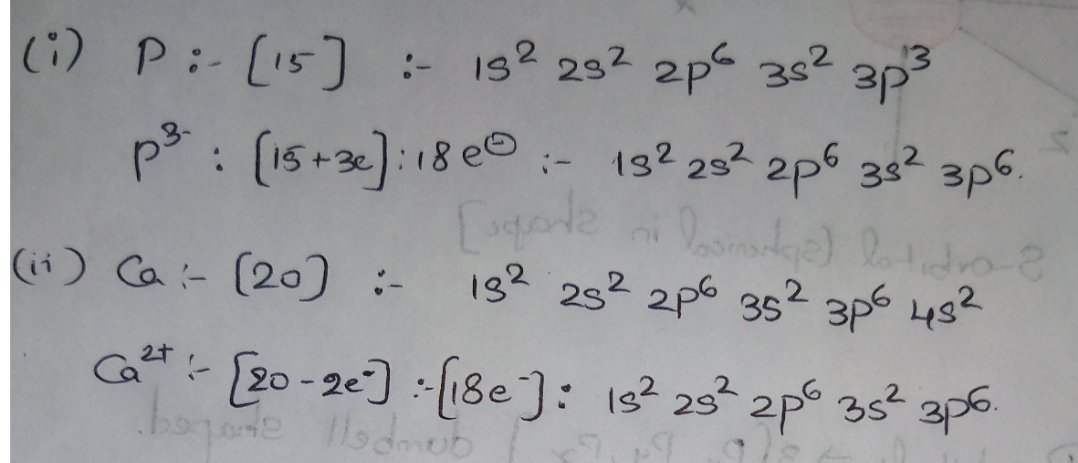 (i) P :- [15] :- 1s² 2s² 2p⁶ 3s² 3p³
P³⁻ : [15+3e] : 18 e⊖ :- 1s² 2s² 2p⁶ 3s² 3p⁶.
(ii) Ca :- [20] :- 1s² 2s² 2p⁶ 3s² 3p⁶ 4s²
Ca²⁺ :- [20-2e⁻] :- [18e⁻] : 1s² 2s² 2p⁶ 3s² 3p⁶.